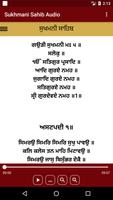 Sukhmani Sahib Audio
ਸੁਖਮਨੀ ਸਾਹਿਬ
ਗਉੜੀ ਸੁਖਮਨੀ ਮਃ ੫ ॥
ਸਲੋਕੁ ॥
ੴ ਸਤਿਗੁਰ ਪ੍ਰਸਾਦਿ ॥
ਆਦਿ ਗੁਰਏ ਨਮਹ ॥
ਜੁਗਾਦਿ ਗੁਰਏ ਨਮਹ ॥
ਸਤਿਗੁਰਏ ਨਮਹ ॥
ਸ੍ਰੀ ਗੁਰਦੇਵਏ ਨਮਹ ॥੧॥
ਅਸਟਪਦੀ ੧॥
ਸਿਮਰਉ ਸਿਮਰਿ ਸਿਮਰਿ ਸੁਖੁ ਪਾਵਉ ॥
ਕਲਿ ਕਲੇਸ ਤਨ ਮਾਹਿ ਮਿਟਾਵਉ ॥
ਸਿਮਰਉ ਜਾਸੁ ਬਿਸੁੰਭਰ ਏਕੈ ॥